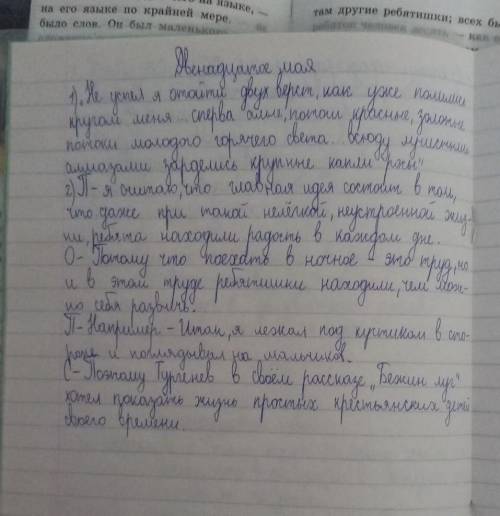 на его языке по крайней мере.
было слов. Он был маленького
там другие ребятишки; всех бы
Двенадцатое мая
1) „Не успел я отойти двух верст, как уже полились
кругом меня сперва алые, потом красные, золотые
потоки молодого горячего света. всюду лучистыми
алмазами зарделись крупные капли росы"
2) П - я считаю, что главная идея состоит в том,
что даже при такой нелёгкой, неустроенной жиз-
ни, ребята находили радость в каждом дне.
О - Потому что поехать в ночное - это труд, но
и в этом труде ребятишки находили, чем мож-
но себя развлечь.
П - Например - Итак, я лежал под кустиком в сто-
роне и поглядывал на мальчиков.
С - Поэтому Тургенев в своём рассказе „Бежин луг"
хотел показать жизнь простых крестьянских детей
своего времени.